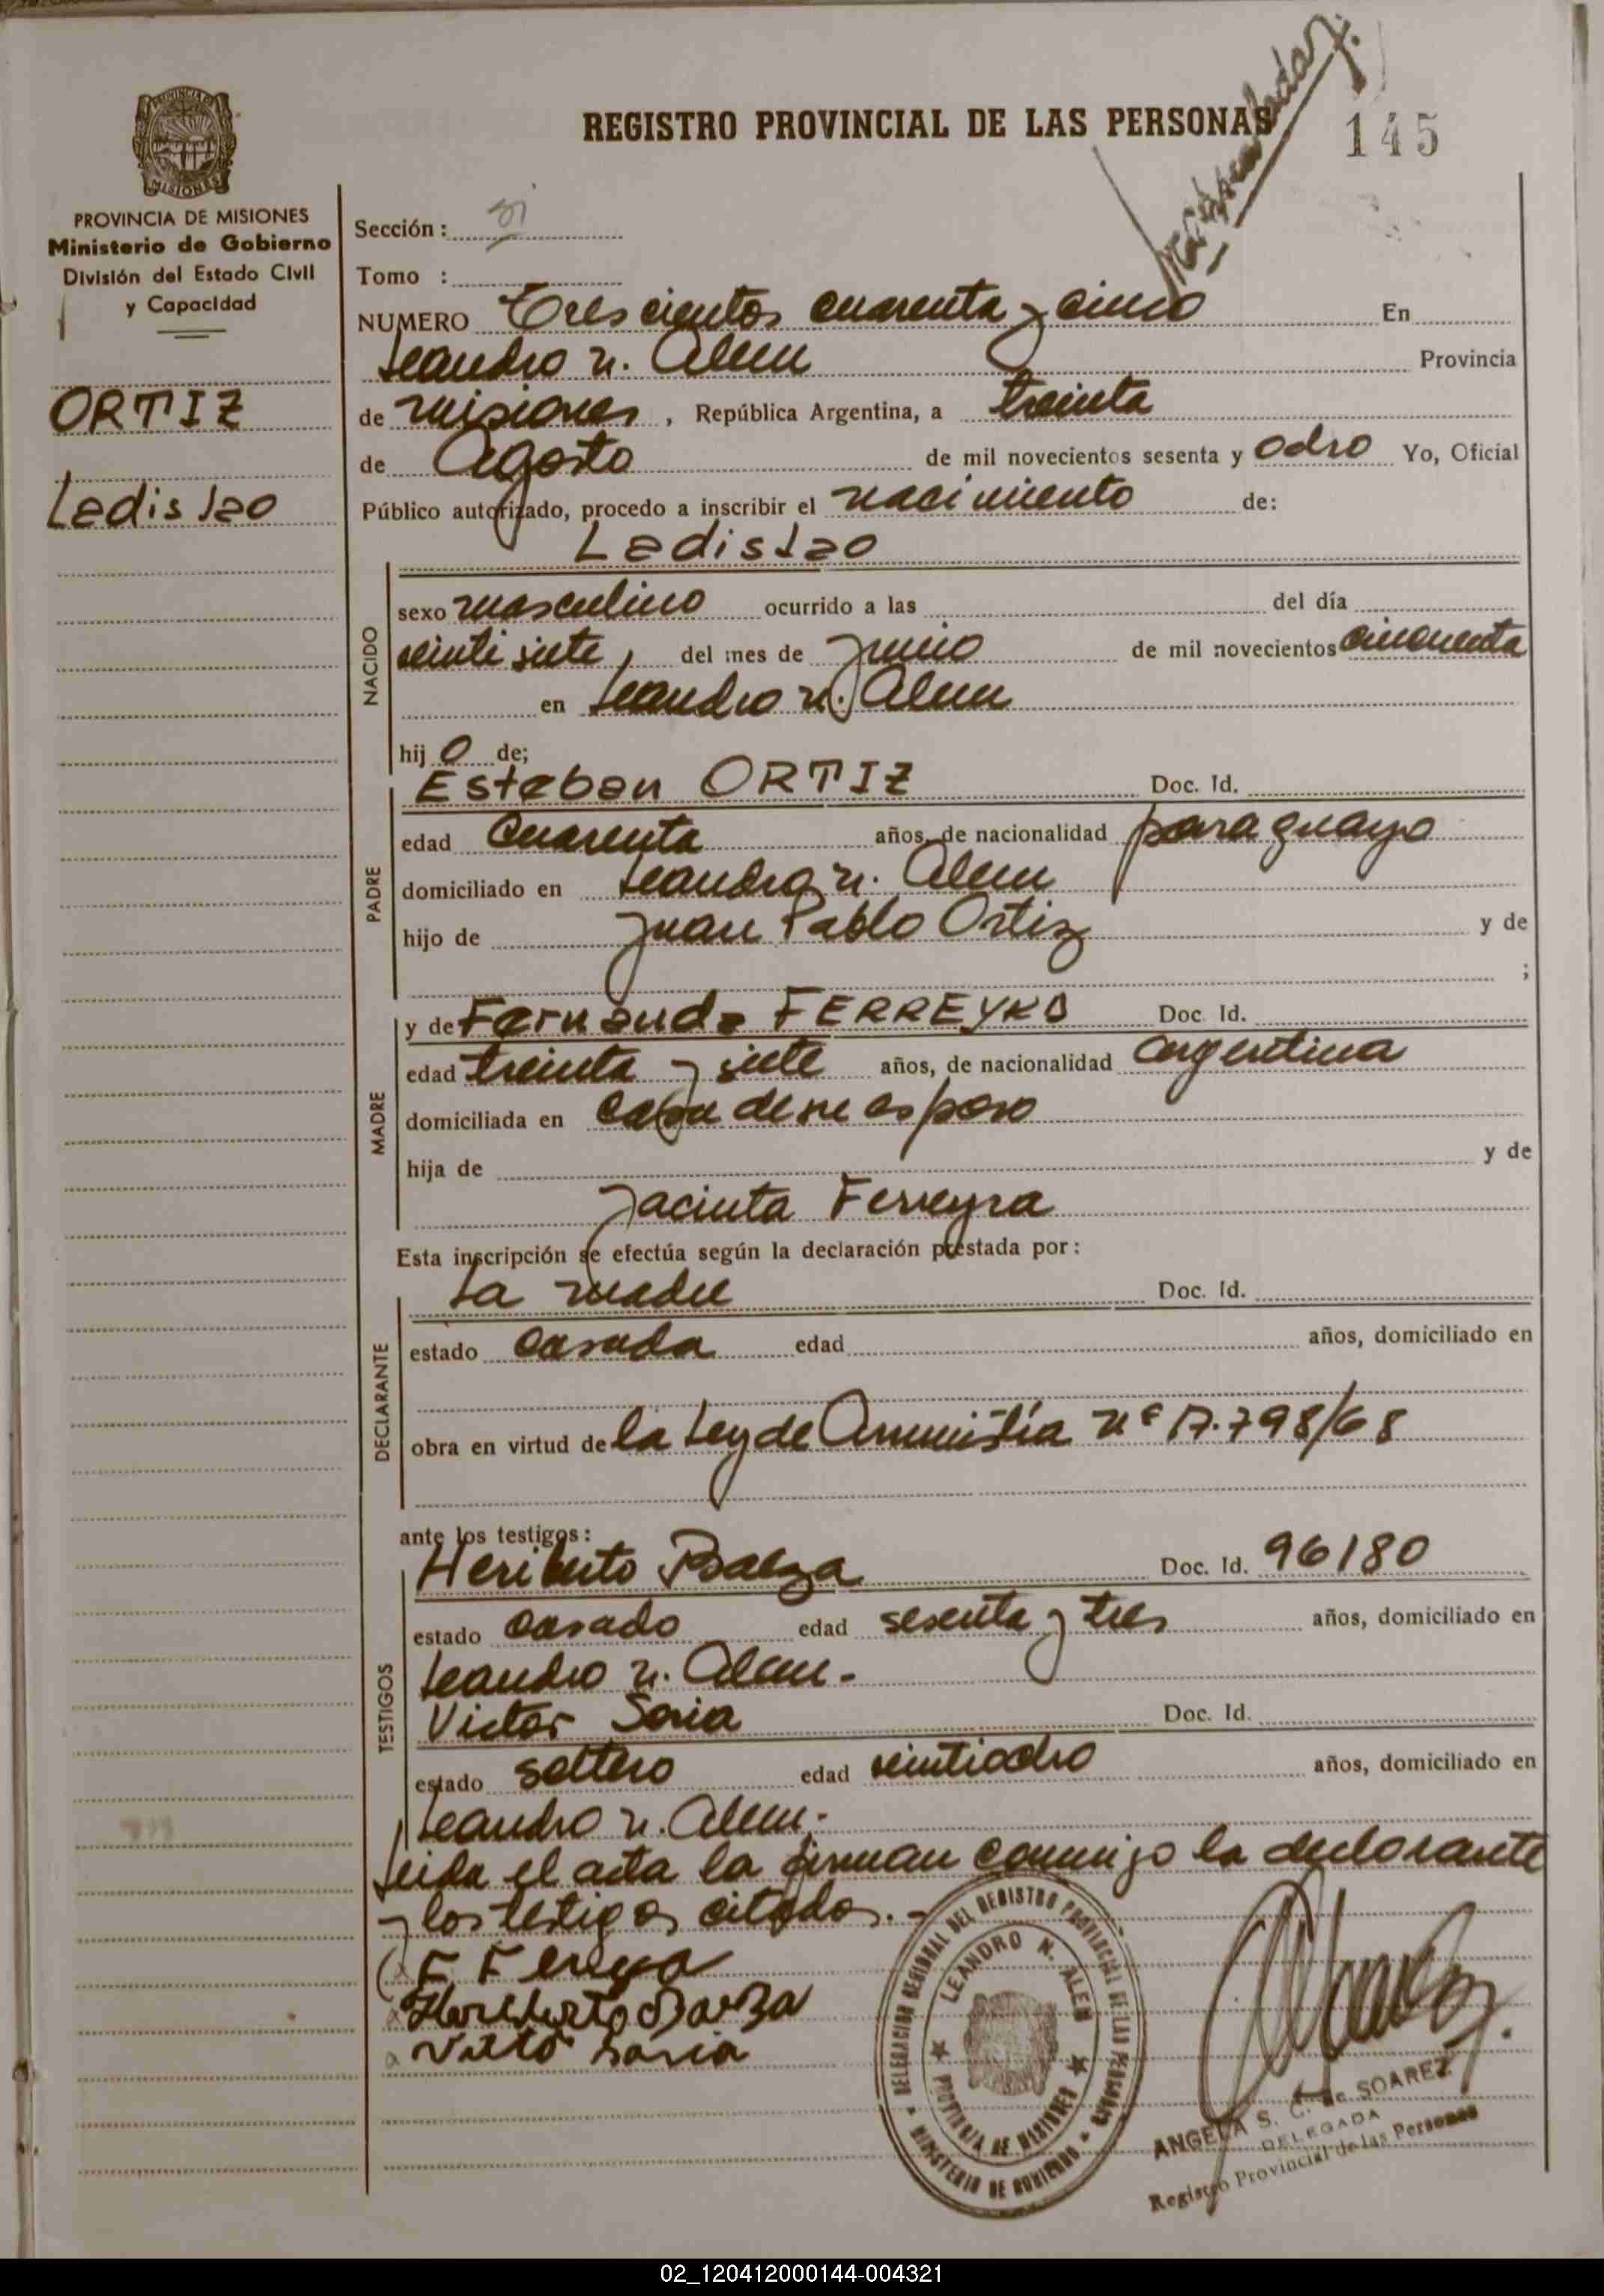 REGISTRO PROVINCIAL DE LAS PERSONAS
145
PROVINCIA DE MISIONES
PROVINCIA DE MISIONES
Ministerio de Gobierno
División del Estado Civil
y Capacidad
ORTIZ
Ladislao
Sección :
Tomo :
NUMERO Trescientos cuarenta y cinco En
Leandro N. Alem Provincia
de Misiones, República Argentina, a treinta
de Agosto de mil novecientos sesenta y ocho Yo, Oficial
Público autorizado, procedo a inscribir el nacimiento de:
Ladislao
NACIDO
sexo masculino ocurrido a las del día
veinti siete, del mes de junio de mil novecientos cincuenta
en Leandro N. Alem
hijo de;
PADRE
Esteban ORTIZ Doc. Id.
edad cuarenta años, de nacionalidad paraguayo
domiciliado en Leandro N. Alem
hijo de Juan Pablo Ortiz y de
;
MADRE
y de Fernanda FERREYRA Doc. Id.
edad treinta y siete años, de nacionalidad argentina
domiciliada en casa de su esposo
hija de y de
Jacinta Ferreyra
Esta inscripción se efectúa según la declaración prestada por:
DECLARANTE
La madre Doc. Id.
estado casada edad años, domiciliado en
obra en virtud de la Ley de Amnistía Nº 17.798/68
ante los testigos:
TESTIGOS
Heriberto Balza Doc. Id. 96180
estado casado edad sesenta y tres años, domiciliado en
Leandro N. Alem.-
Victor Soria Doc. Id.
estado soltero edad veintiocho años, domiciliado en
Leandro N. Alem.-
Leida el acta la firman conmigo la declarante
y los testigos citados.-
F Fereya
Heriberto Balza
Victo Soria
DELEGACION REGIONAL DEL REGISTRO PROVINCIAL DE LAS PERSONAS
LEANDRO N. ALEM
PROVINCIA DE MISIONES
MINISTERIO DE GOBIERNO
ANGELA S. C. de SOAREZ
DELEGADA
Registro Provincial de las Personas
02_120412000144-004321